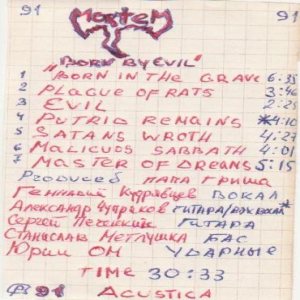 91 91
MORTEM
"BORN BY EVIL"
1 "BORN IN THE GRAVE 6:35
2 PLAGUE OF RATS 3:46
3 EVIL 2:21
4 PUTRID REMAINS 4:10
5 SATANS WROTH 4:27
6 MALICUOS SABBATH 4:01
7 MASTER OF DREAMS 5:15
Produced ПАПА ГРИША
Геннадий Кудрявцев ВОКАЛ
Александр ГИТАРА/ВОКАЛ
Сергей Печенкин ГИТАРА
Станислав Метлушка БАС
Юрий ОМ УДАРНЫЕ
TIME 30:33
91 ACUSTICA